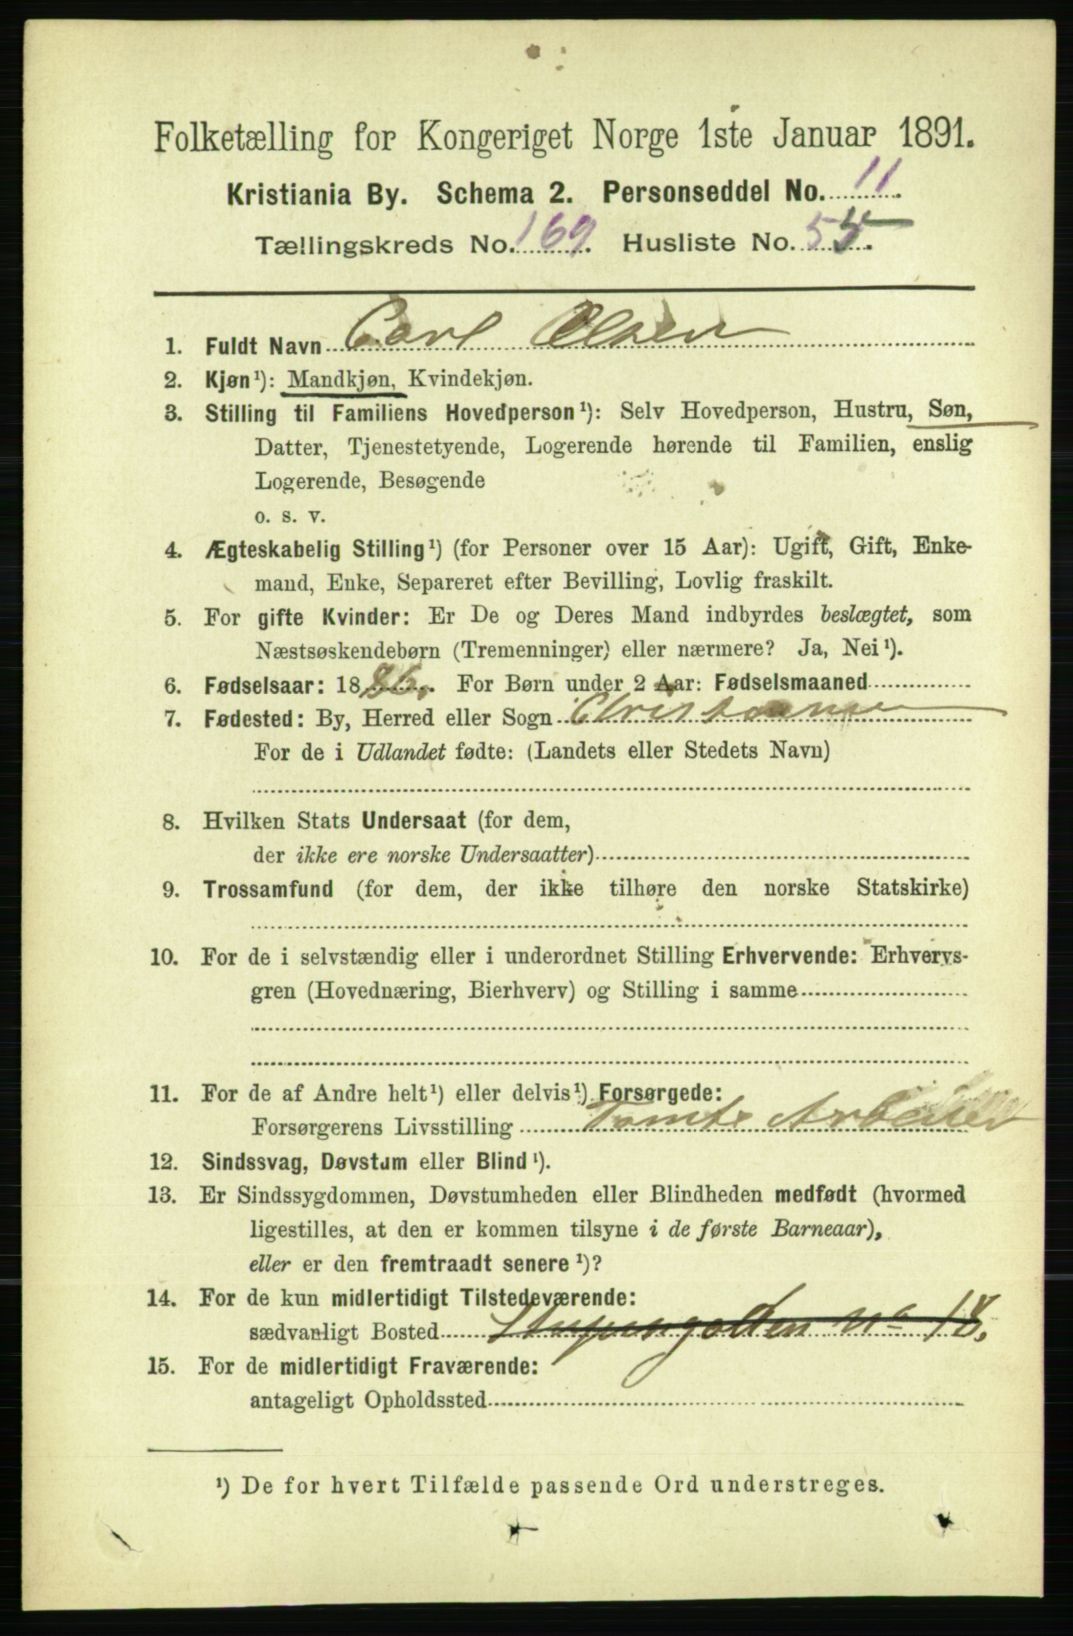 Folketælling for Kongeriget Norge 1ste Januar 1891.
Kristiania By. Schema 2. Personseddel No. 11.
Tællingskreds No. 169. Husliste No. 55.
1. Fuldt Navn Carl Olsen
2. Kjøn¹): Mandkjøn, Kvindekjøn.
3. Stilling til Familiens Hovedperson¹): Selv Hovedperson, Hustru, Søn,
Datter, Tjenestetyende, Logerende hørende til Familien, enslig
Logerende, Besøgende
o. s. v.
4. Ægteskabelig Stilling¹) (for Personer over 15 Aar): Ugift, Gift, Enke-
mand, Enke, Separeret efter Bevilling, Lovlig fraskilt.
5. For gifte Kvinder: Er De og Deres Mand indbyrdes beslægtet, som
Næstsøskendebørn (Tremenninger) eller nærmere? Ja, Nei¹).
6. Fødselsaar: 1886. For Børn under 2 Aar: Fødselsmaaned
7. Fødested: By, Herred eller Sogn
For de i Udlandet fødte: (Landets eller Stedets Navn)
8. Hvilken Stats Undersaat (for dem,
der ikke ere norske Undersaatter)
9. Trossamfund (for dem, der ikke tilhøre den norske Statskirke)
10. For de i selvstændig eller i underordnet Stilling Erhvervende: Erhvervs-
gren (Hovednæring, Bierhverv) og Stilling i samme
11. For de af Andre helt¹) eller delvis¹) Forsørgede:
Forsørgerens Livsstilling Tomte Arbeider
12. Sindssvag, Døvstum eller Blind¹).
13. Er Sindssygdommen, Døvstumheden eller Blindheden medfødt (hvormed
ligestilles, at den er kommen tilsyne i de første Barneaar),
eller er den fremtraadt senere¹)?
14. For de kun midlertidigt Tilstedeværende:
sædvanligt Bosted No 18.
15. For de midlertidigt Fraværende:
antageligt Opholdssted
¹) De for hvert Tilfælde passende Ord understreges.